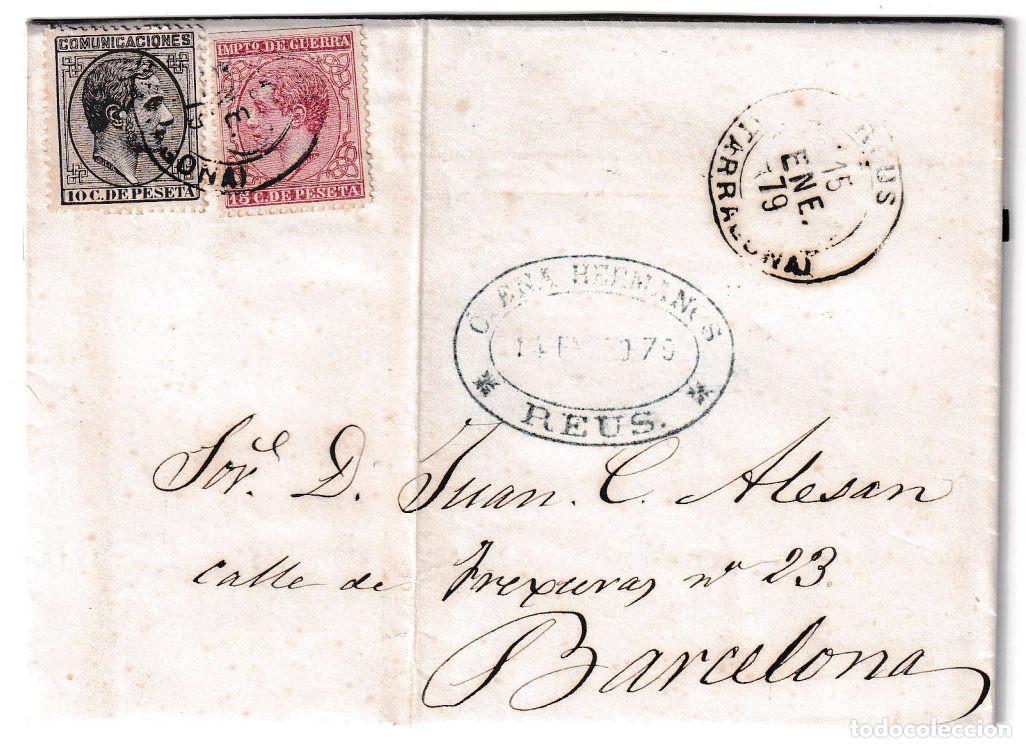 COMUNICACIONES
10 C. DE PESETA
IMPTO DE GUERRA
15 C. DE PESETA
REUS
15
ENE.
79
(TARRAGONA)
HERMANOS
REUS.
Sor. D. Juan. C. Alesan
calle de Frexuras nº 23
Barcelona
todocoleccion